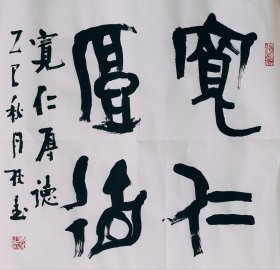 寬仁
厚德
寛仁厚德
乙巳秋月